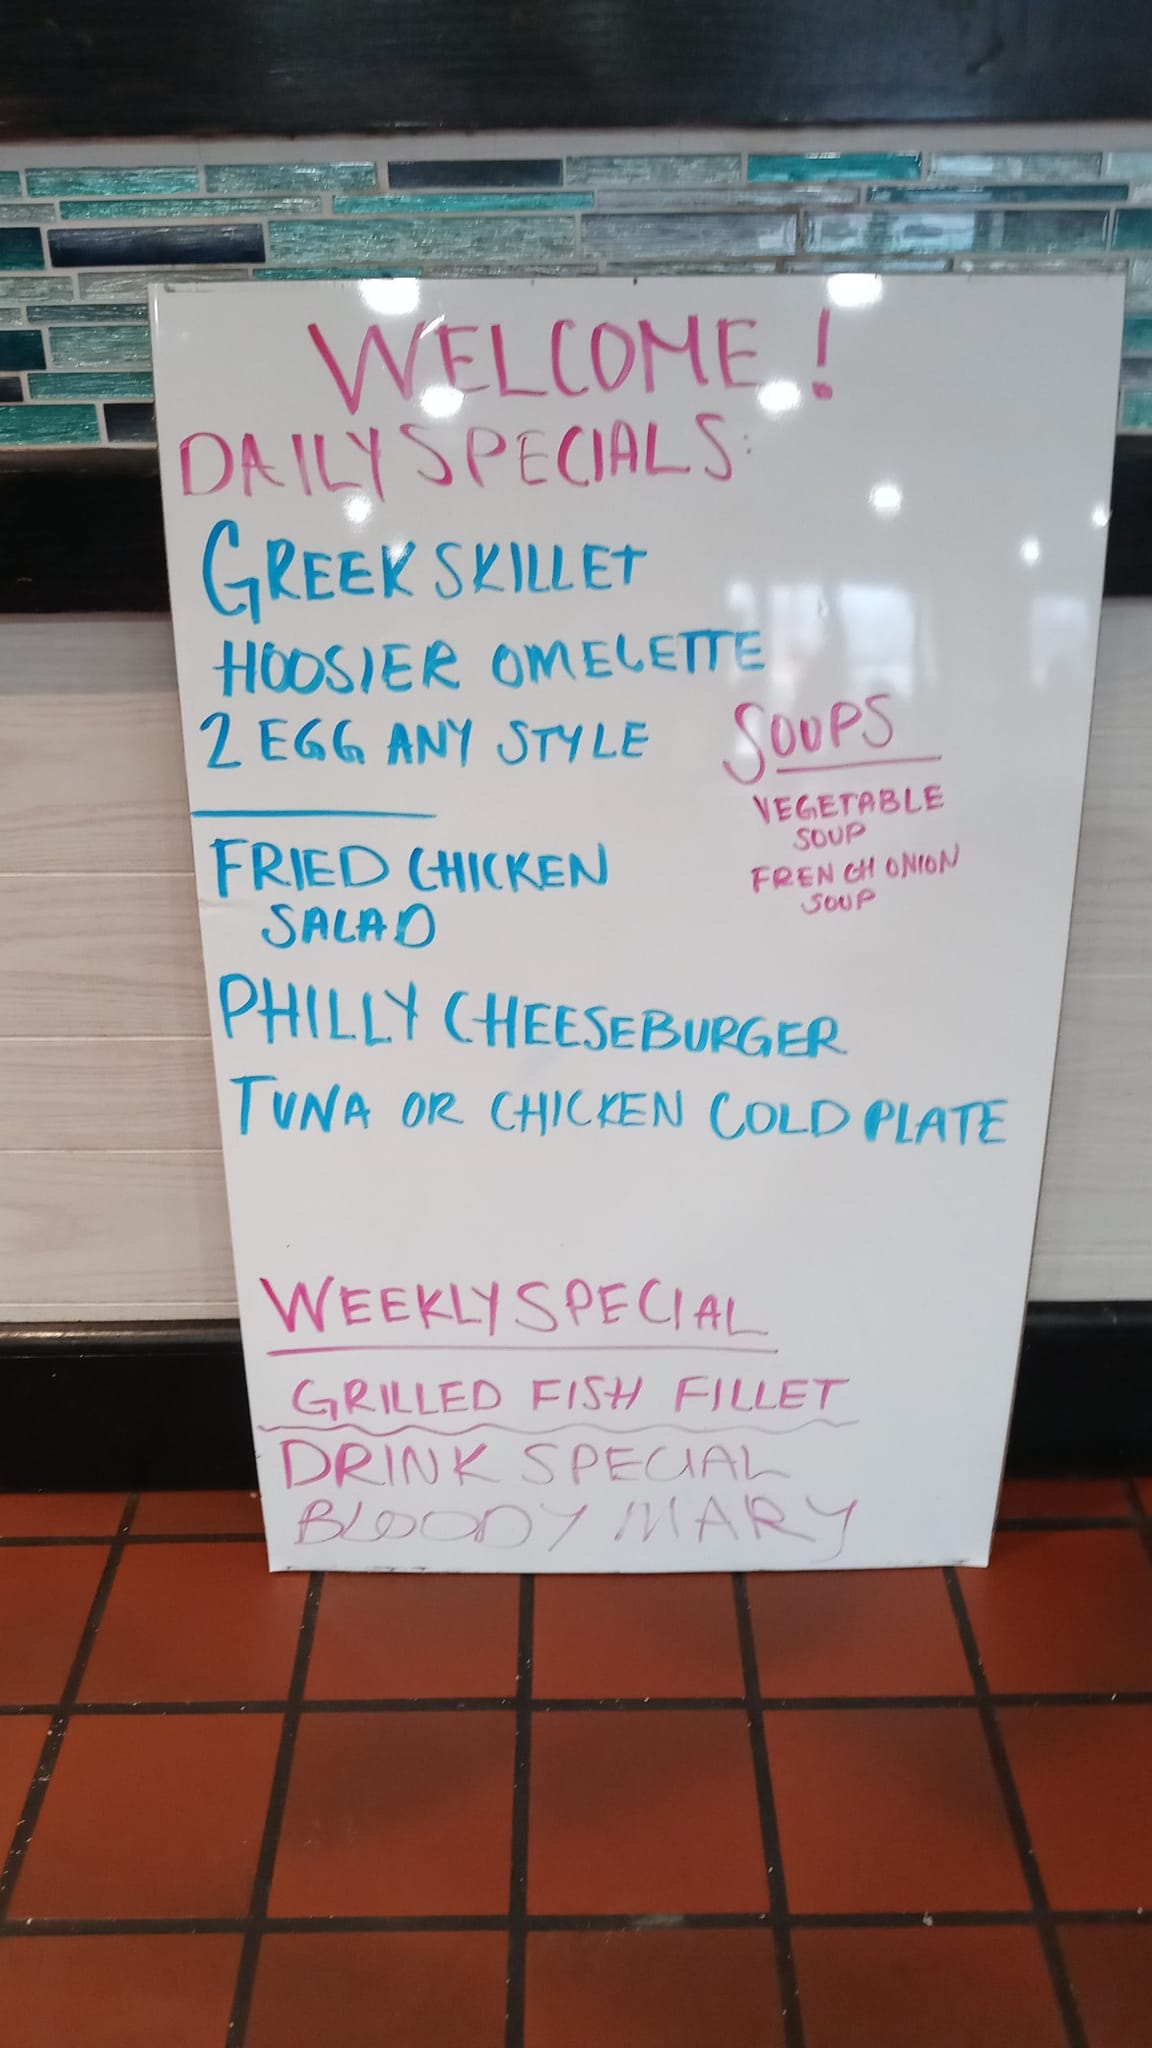 WELCOME!
DAILY SPECIALS:
GREEK SKILLET
HOOSIER OMELETTE
2 EGG ANY STYLE
SOUPS
VEGETABLE
SOUP
FRENCH ONION
SOUP
FRIED CHICKEN
SALAD
PHILLY CHEESEBURGER
TUNA OR CHICKEN COLD PLATE
WEEKLY SPECIAL
GRILLED FISH FILLET
DRINK SPECIAL
BLOODY MARY